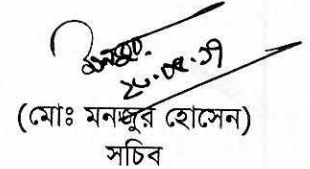 ২০.০৫.১৭
(মোঃ মনজুর হোসেন)
সচিব